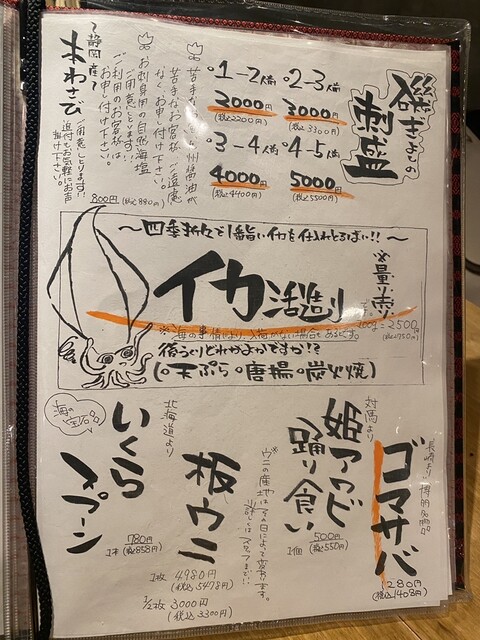 磯ぎよしの
刺盛
○1-2人前
3000円
(税込2200円)
○2-3人前
3000円
(税込3300円)
○3-4人前
4000円
(税込4400円)
○4-5人前
5000円
(税込5500円)
苦手なお客様、ご遠慮
なくお申し付け下さい。
お刺身用の自然海塩
ご用意しとります。
ご利用のお客様は、
お申し付け下さい。
〜静岡産〜
本わさび
ご用意しとります!!
お気軽にお声
掛け下さい。
800円(税込880円)
〜四季折々で1番旨いイカを仕入れとるばい!!〜
イカ活造り
※量り売り
100g=2500円
(税込2750円)
※海の事情により、入荷がない場合もあるとです。
後づくりどれがよかですか!?
(○天ぷら○唐揚○炭火焼)
長崎より
博多名物
ゴマサバ
1280円
(税込1408円)
対馬より
姫アワビ
(踊り食い)
500円
1個(税込550円)
ウニの産地は、その日によって変わります。
北海道より
板ウニ
1枚 4980円
(税込5478円)
1/2枚 3000円
(税込3300円)
海の宝石
いくら
スプーン
780円
1本(税込858円)